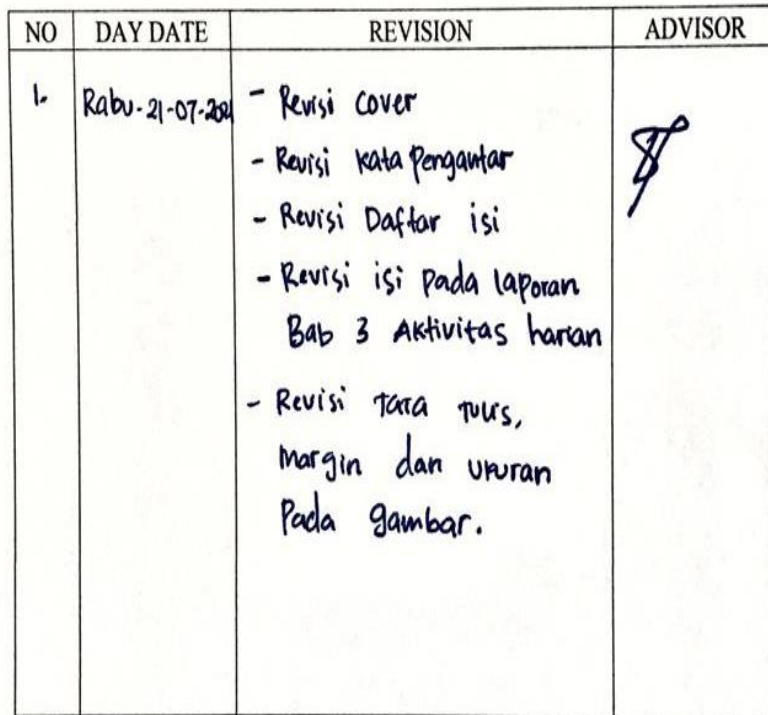 NO DAY DATE REVISION ADVISOR
1. Rabu-21-07-2021 - Revisi cover
- Revisi kata Pengantar
- Revisi Daftar isi
- Revisi isi pada laporan
Bab 3 Aktivitas harian
- Revisi Tata Tulis,
Margin dan ukuran
Pada gambar.